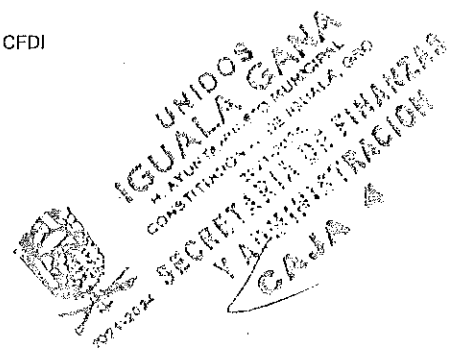 CFDI
UNIDOS
IGUALA GANA
H. AYUNTAMIENTO MUNICIPAL
CONSTITUCIONAL DE IGUALA, GRO
2021-2024
SECRETARIA DE FINANZAS
Y ADMINISTRACION
CAJA
2021-2024